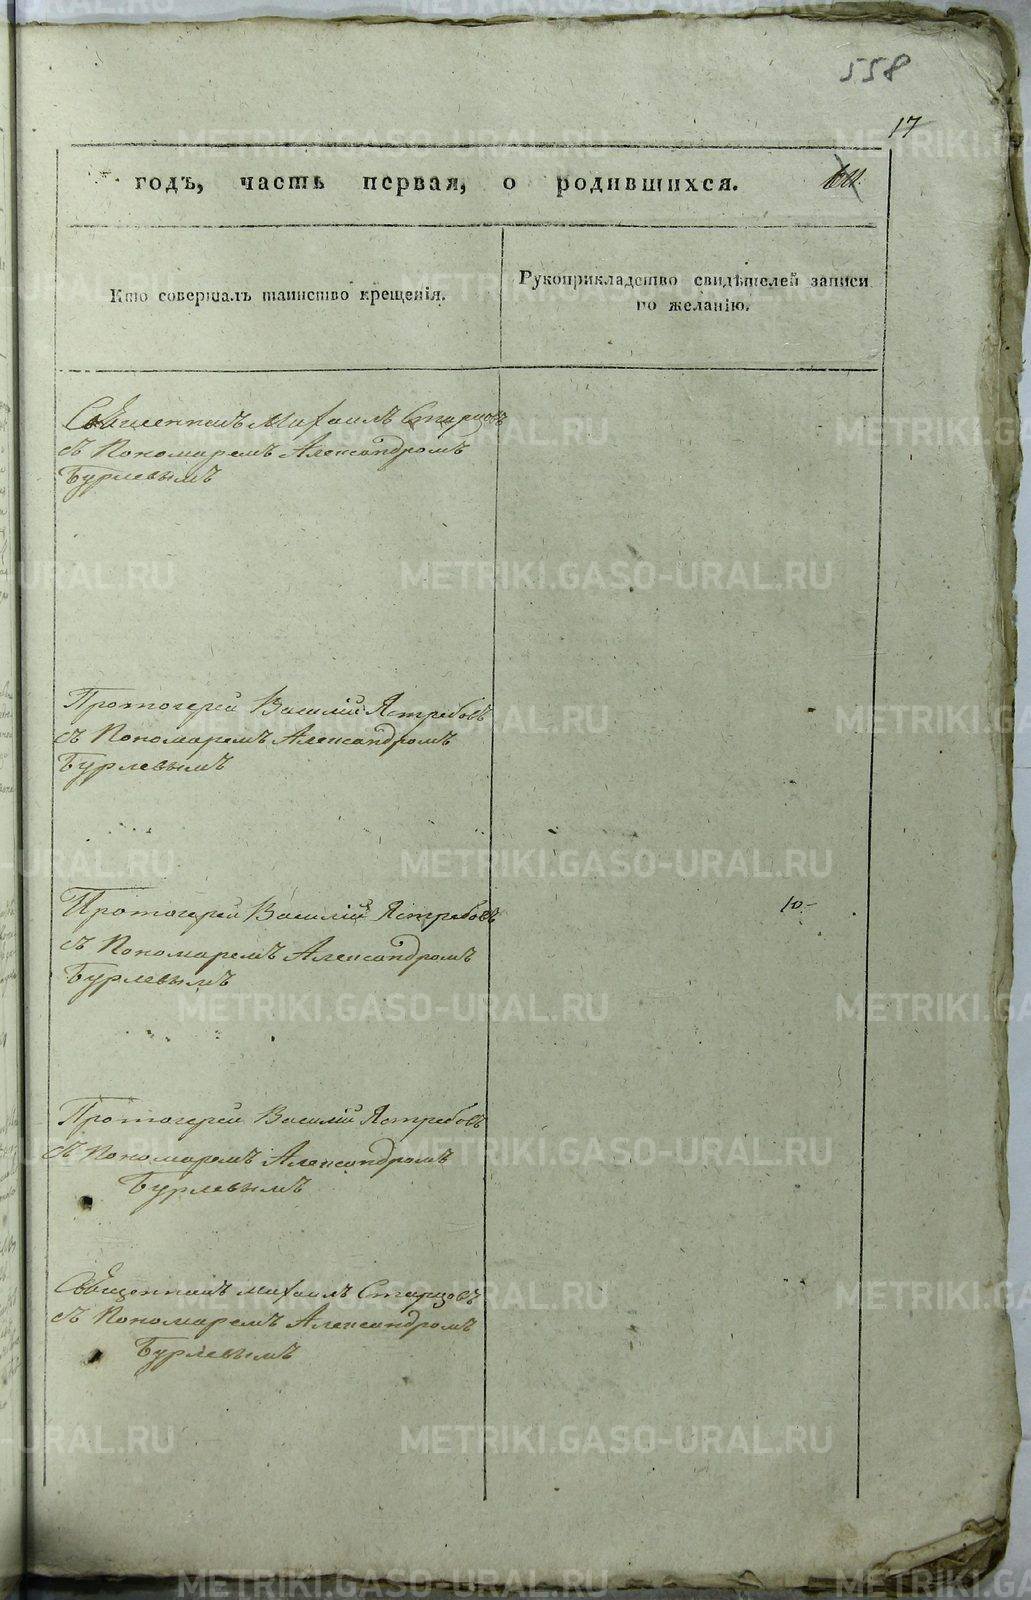 558
17
годъ, часть первая, о родившихся.
Кто совершалъ таинство крещенія.
Рукоприкладство свидѣтелей записи
по желанію.
Священникъ Михаилъ Старцовъ
съ Пономаремъ Александромъ
Бурлевымъ
Протоіерей Василій Ястребовъ
съ Пономаремъ Александромъ
Бурлевымъ
Протоіерей Василій Ястребовъ
10.
съ Пономаремъ Александромъ
Бурлевымъ
Протоіерей Василій Ястребовъ
съ Пономаремъ Александромъ
Бурлевымъ
Священникъ Михаилъ Старцовъ
съ Пономаремъ Александромъ
Бурлевымъ
METRIKI.GASO-URAL.RU